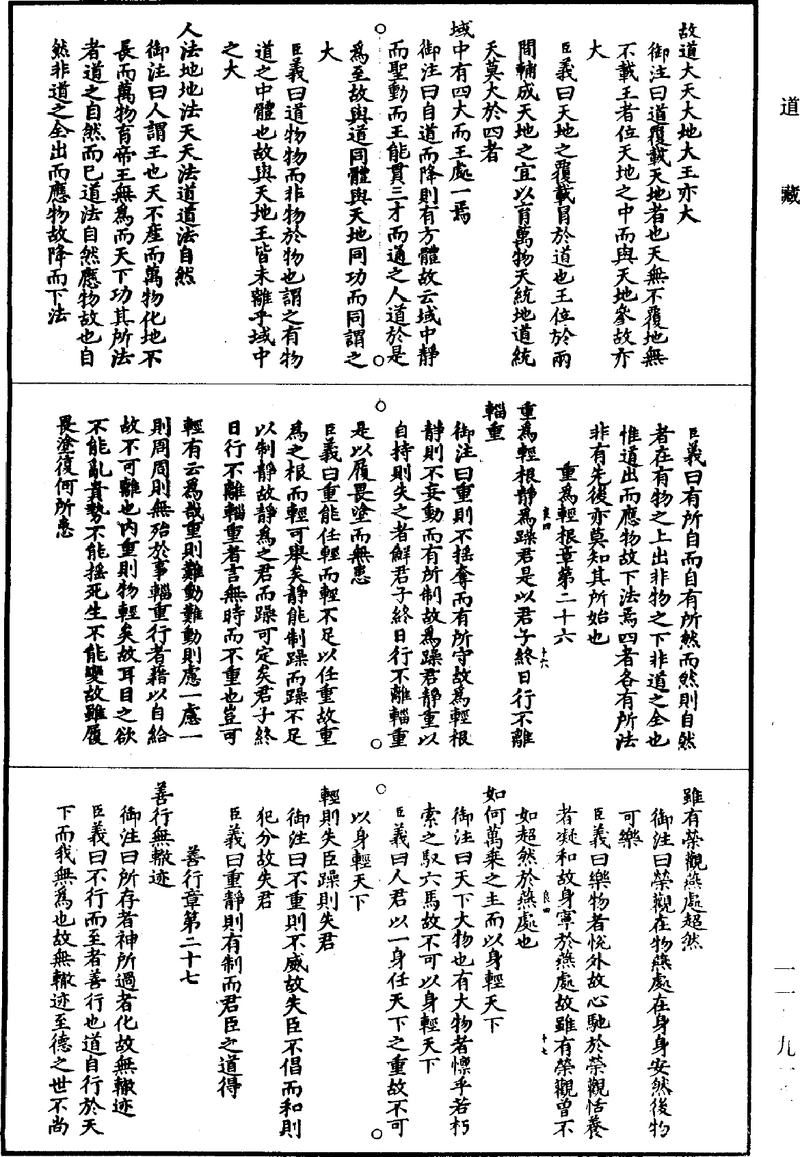 道藏
故道大天大地大王亦大
御注曰道覆載天地者也天無不覆地無
不載王者位天地之中而與天地參故亦
大
臣義曰天地之覆載冒於道也王位於兩
間輔成天地之宜以育萬物天統地道統
天莫大於四者
域中有四大而王處一焉
御注曰自道而降則有方體故云域中靜
而聖動而王能貫三才而通之人道於是
為至故與道同體與天地同功而同謂之
大
臣義曰道物物而非物於物也謂之有物
道之中體也故與天地王皆未離乎域中
之大
人法地地法天天法道道法自然
御注曰人謂王也天不產而萬物化地不
長而萬物育帝王無為而天下功其所法
者道之自然而已道法自然應物故也自
然非道之全出而應物故降而下法
臣義曰有所自而自有所然而然則自然
者在有物之上出非物之下非道之全也
惟道出而應物故下法焉四者各有所法
非有先後亦莫知其所始也
重為輕根章第二十六
重為輕根靜為躁君是以君子終日行不離
輜重
御注曰重則不搖奪而有所守故為輕根
靜則不妄動而有所制故為躁君靜重以
自持則失之者鮮君子終日行不離輜重
是以履畏塗而無患
臣義曰重能任輕而輕不足以任重故重
為之根而輕可舉矣靜能制躁而躁不足
以制靜故靜為之君而躁可定矣君子終
日行不離輜重者言無時而不重也豈可
輕有云為哉重則難動難動則慮一慮一
則周周則無殆於事輜重行者藉以自給
故不可離也內重則物輕矣故耳目之欲
不能亂貴勢不能搖死生不能變故雖履
畏塗復何所患
雖有榮觀燕處超然
御注曰榮觀在物燕處在身身安然後物
可樂
臣義曰樂物者悅外故心馳於榮觀恬養
者凝和故身寧於燕處故雖有榮觀曾不
如超然於燕處也
如何萬乘之主而以身輕天下
御注曰天下大物也有大物者懍乎若朽
索之馭六馬故不可以身輕天下
臣義曰人君以一身任天下之重故不可
以身輕天下
輕則失臣躁則失君
御注曰不重則不威故失臣不倡而和則
犯分故失君
臣義曰重靜則有制而君臣之道得
善行章第二十七
善行無轍迹
御注曰所存者神所過者化故無轍迹
臣義曰不行而至者善行也道自行於天
下而我無為也故無轍迹至德之世不尚